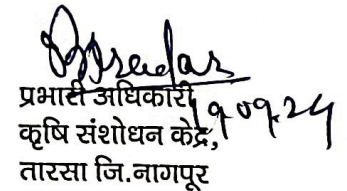 प्रभारी अधिकारी
19.09.24
कृषि संशोधन केंद्र,
तारसा जि.नागपूर